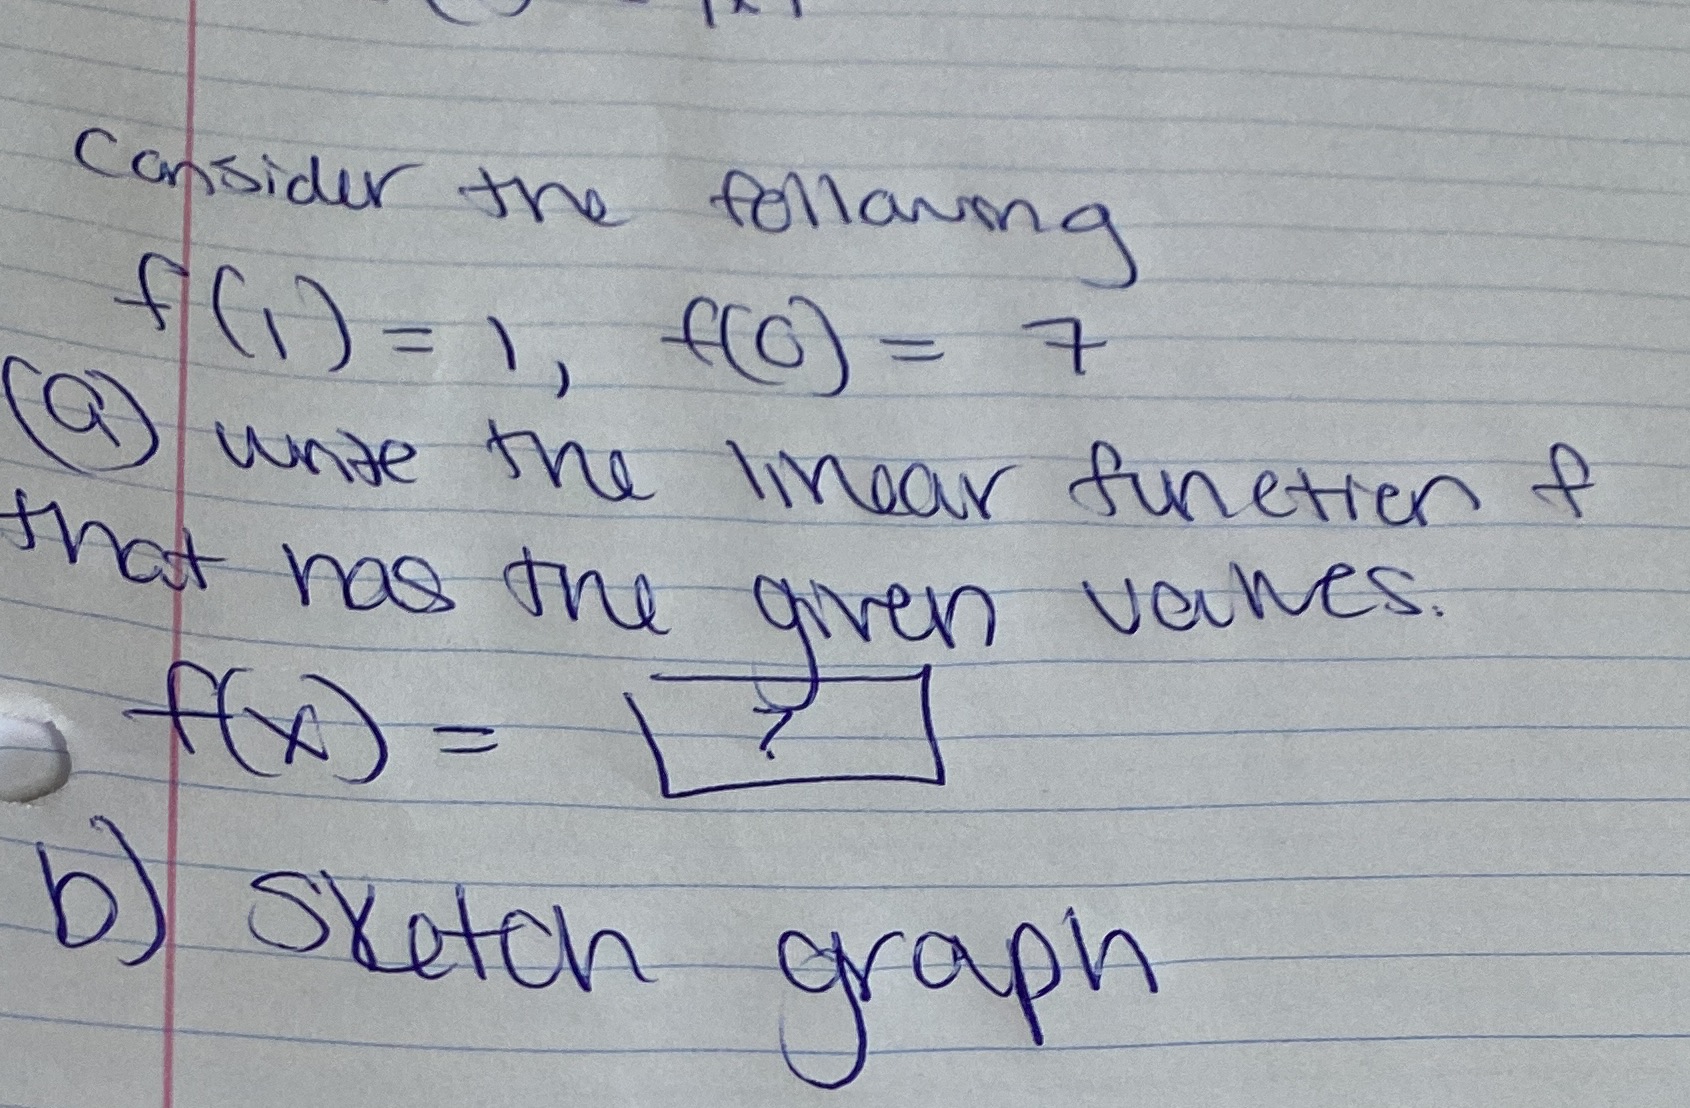 Consider the following
f(1) = 1, f(0) = 7
(a) write the linear function f
that has the given values.
f(x) = ?
b) Sketch graph